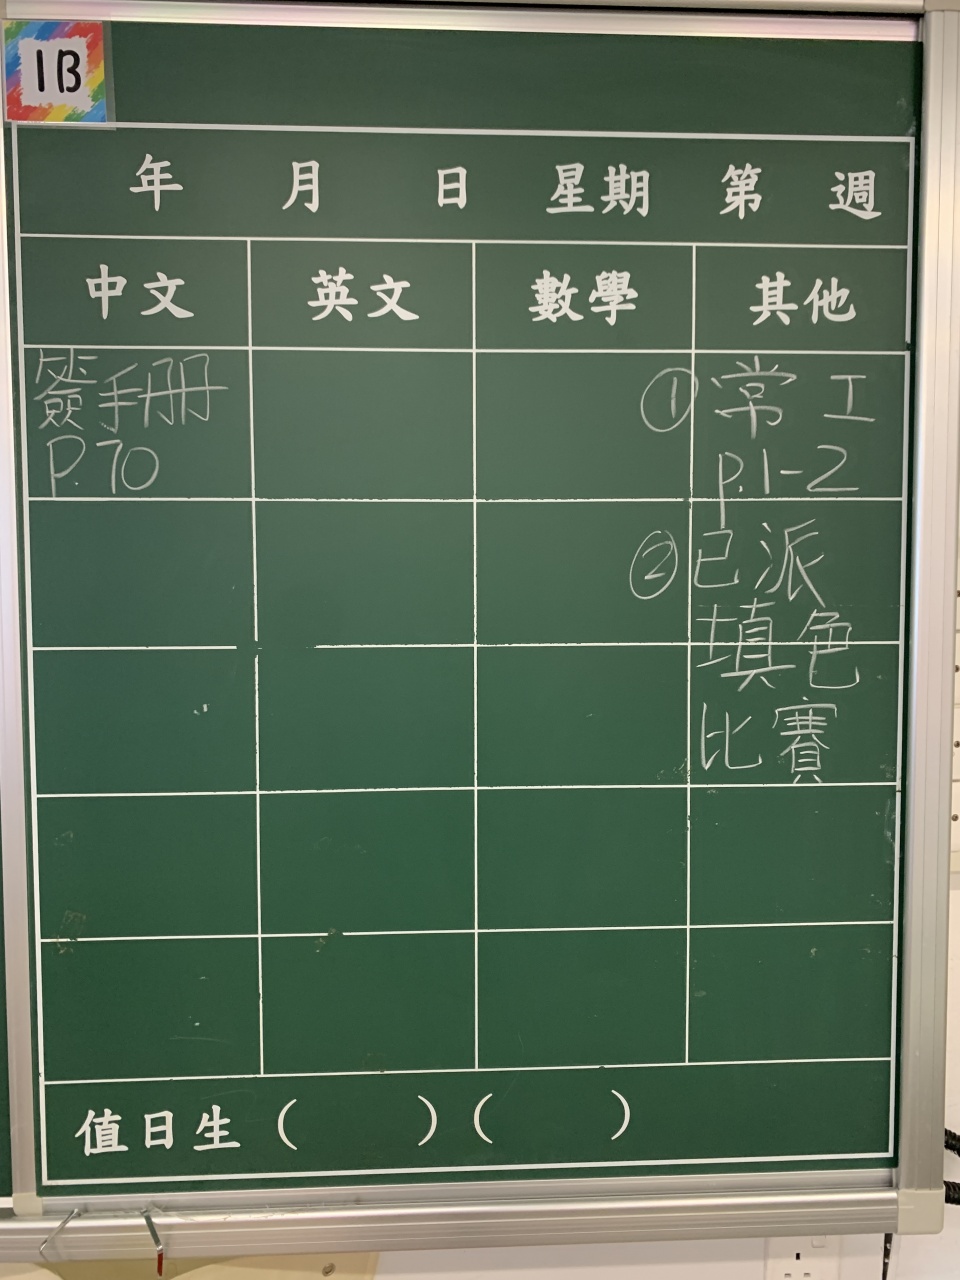 1B
年 月 日 星期 第 週
中文 英文 數學 其他
簽手冊
P.70
① 常 工
p.1-2
② 已派
填色
比賽
值日生 ( ) ( )